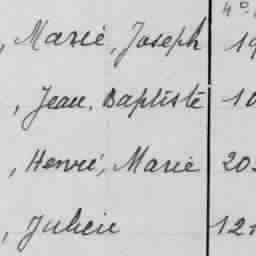 4º.
, Marie, Joseph 19
, Jean, Baptiste 10
, Henri, Marie 20
, Julien 121